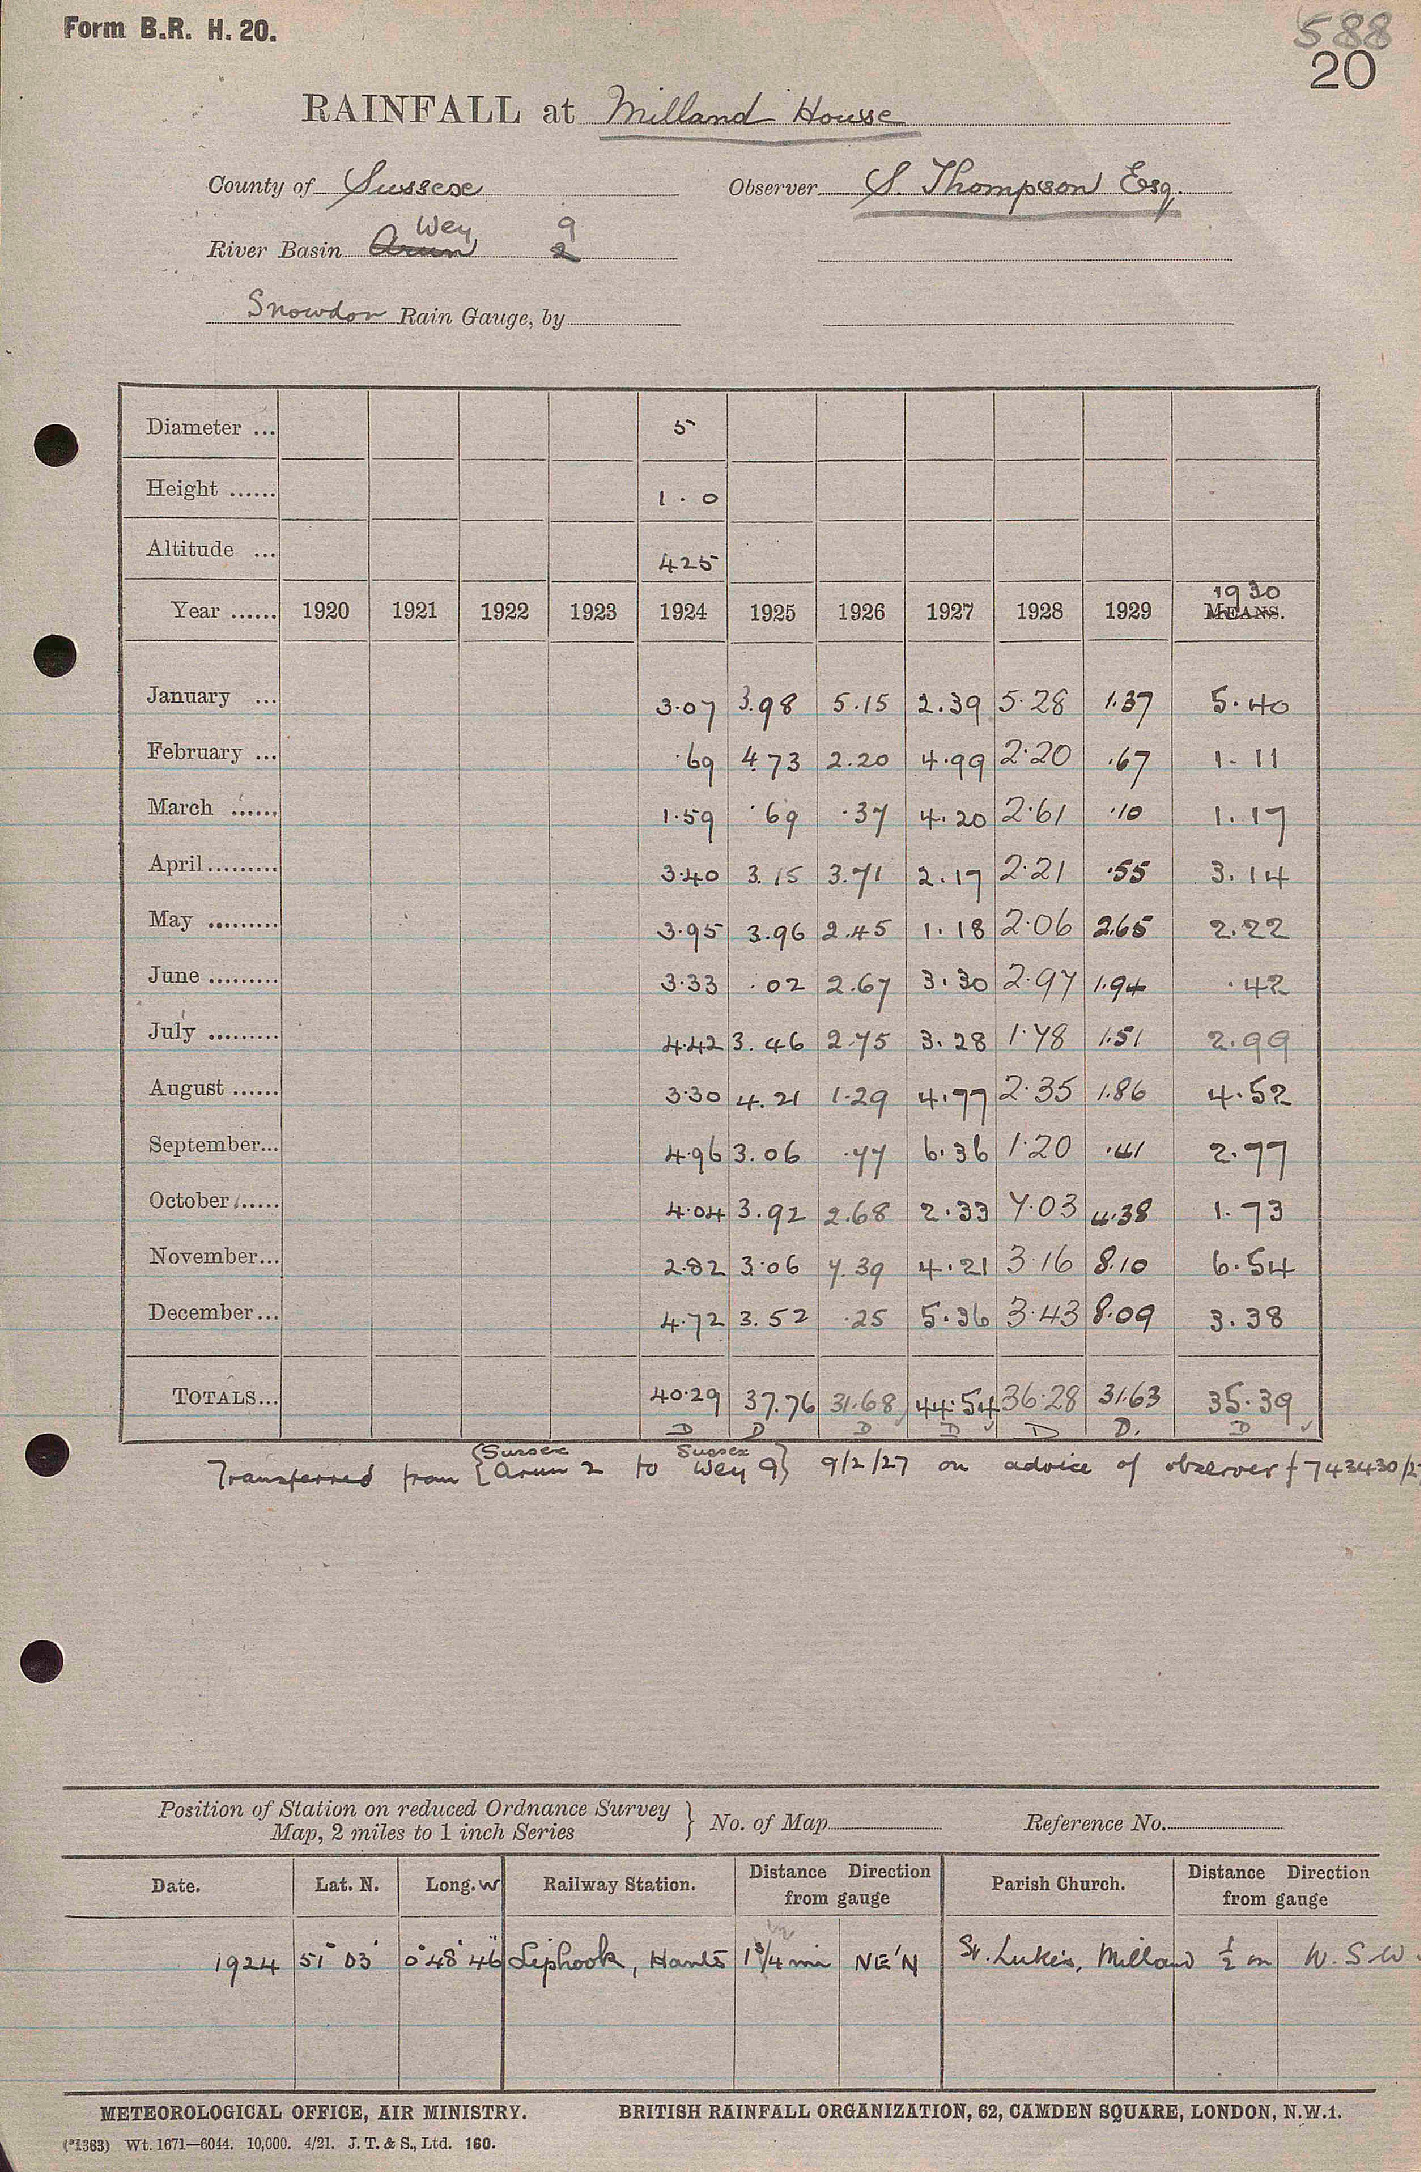 Form B.R. H. 20.
588
20
RAINFALL at Milland House
County of Sussex Observer S. Thompson Esq.
Wey 9
River Basin Arun 2
Snowdon Rain Gauge, by
Diameter ... 5
Height ...... 1.0
Altitude ... 425
1930
Year ...... 1920 1921 1922 1923 1924 1925 1926 1927 1928 1929 MEANS.
January ... 3.07 3.98 5.15 2.39 5.28 1.37 5.40
February ... .69 4.73 2.20 4.99 2.20 .67 1.11
March ...... 1.59 .69 .37 4.20 2.61 .10 1.17
April ......... 3.40 3.15 3.71 2.17 2.21 .55 3.14
May ......... 3.95 3.96 2.45 1.18 2.06 2.65 2.22
June ......... 3.33 .02 2.67 3.30 2.97 1.94 .42
July ......... 4.42 3.46 2.75 3.28 1.78 1.51 2.99
August ...... 3.30 4.21 1.29 4.77 2.35 1.86 4.52
September... 4.96 3.06 .77 6.36 1.20 .41 2.77
October ...... 4.04 3.92 2.68 2.33 7.03 4.38 1.73
November... 2.82 3.06 7.39 4.21 3.16 8.10 6.54
December... 4.72 3.52 .25 5.36 3.43 8.09 3.38
TOTALS... 40.29 37.76 31.68 44.54 36.28 31.63 35.39
D D D D D D. D
Sussex Sussex
Transferred from {Arun 2 to Wey 9} 9/2/27 on advice of observer f 743430/27
Position of Station on reduced Ordnance Survey
Map, 2 miles to 1 inch Series } No. of Map Reference No.
Date. Lat. N. Long. W Railway Station. Distance Direction from gauge Parish Church. Distance Direction from gauge
1924 51° 03' 0° 48' 46" Liphook, Hants 1 3/4 mi NE'N St. Luke's, Milland 1/2 m W.S.W.
METEOROLOGICAL OFFICE, AIR MINISTRY. BRITISH RAINFALL ORGANIZATION, 62, CAMDEN SQUARE, LONDON, N.W.1.
(*1383) Wt. 1671—6044. 10,000. 4/21. J. T. & S., Ltd. 160.